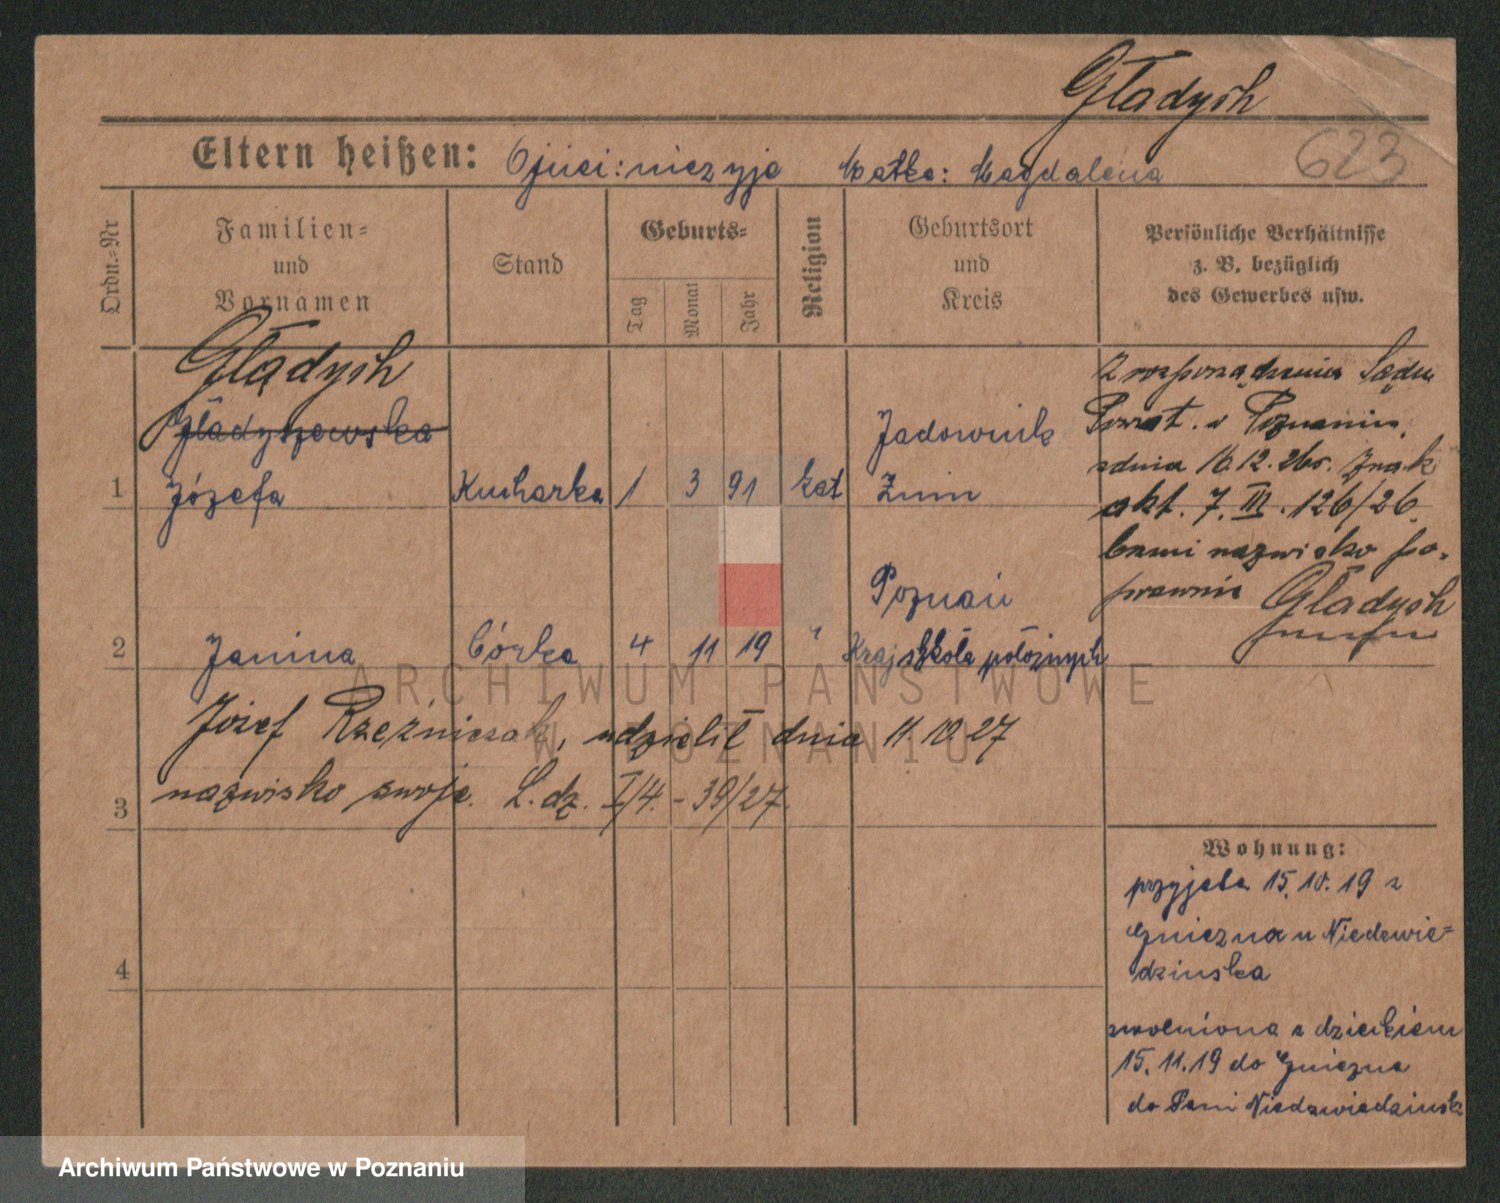 Gładysh
623
Eltern heißen: Ojciec: niezyje Matka: Magdalena
Ordn.-Nr
Familien-
und
Vornamen
Stand
Geburts-
Tag
Monat
Jahr
Religion
Geburtsort
und
Kreis
Persönliche Verhältnisse
z. B. bezüglich
des Gewerbes usw.
Gładysh
Gładyszewska
1 Józefa Kucharka 1 3 91 kat
Jadownik
Żnin
Z rozporządzenia Sądu
Powiat. w Poznaniu,
zdnia 16.12.26r. Znak
akt. 7. III. 126/26.
brzmi nazwisko po-
prawnie Gładysh
2 Janina Córka 4 11 19 "
Poznań
Kraj szkoła położnych
Józef Rzeźniczak, udzielił dnia 11.10.27
3 nazwisko swoje. L. dz. I/4. - 39/27.
4
Wohnung:
przyjęta 15.10.19 z
Gniezna u Niedzwie-
dzinska
zwolniona z dzieckiem
15.11.19 do Gniezna
do Pani Niedzwiedzinsk
ARCHIWUM PAŃSTWOWE
W POZNANIU
Archiwum Państwowe w Poznaniu